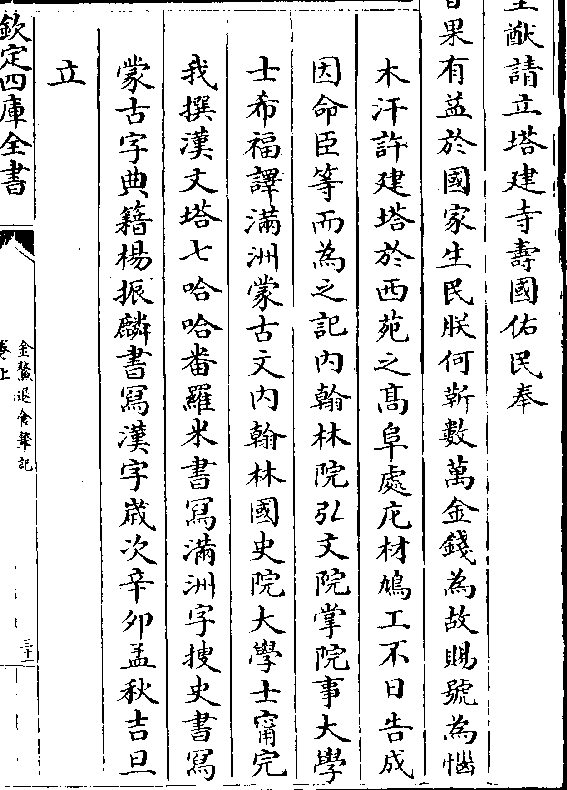 猷請立塔建寺壽國佑民奉
旨果有益於國家生民朕何靳數萬金錢為故賜號為惱
木汗許建塔於西苑之髙阜處庀材鳩工不日告成
因命臣等而為之記内翰林院弘文院掌院事大學
士希福譯滿洲蒙古文内翰林國史院大學士甯完
我撰漢文塔七哈哈番羅米書寫滿洲字搜史書寫
蒙古字典籍楊振麟書寫漢字歲次辛卯孟秋吉旦
立
欽定四庫全書
金鰲退食筆記
卷上